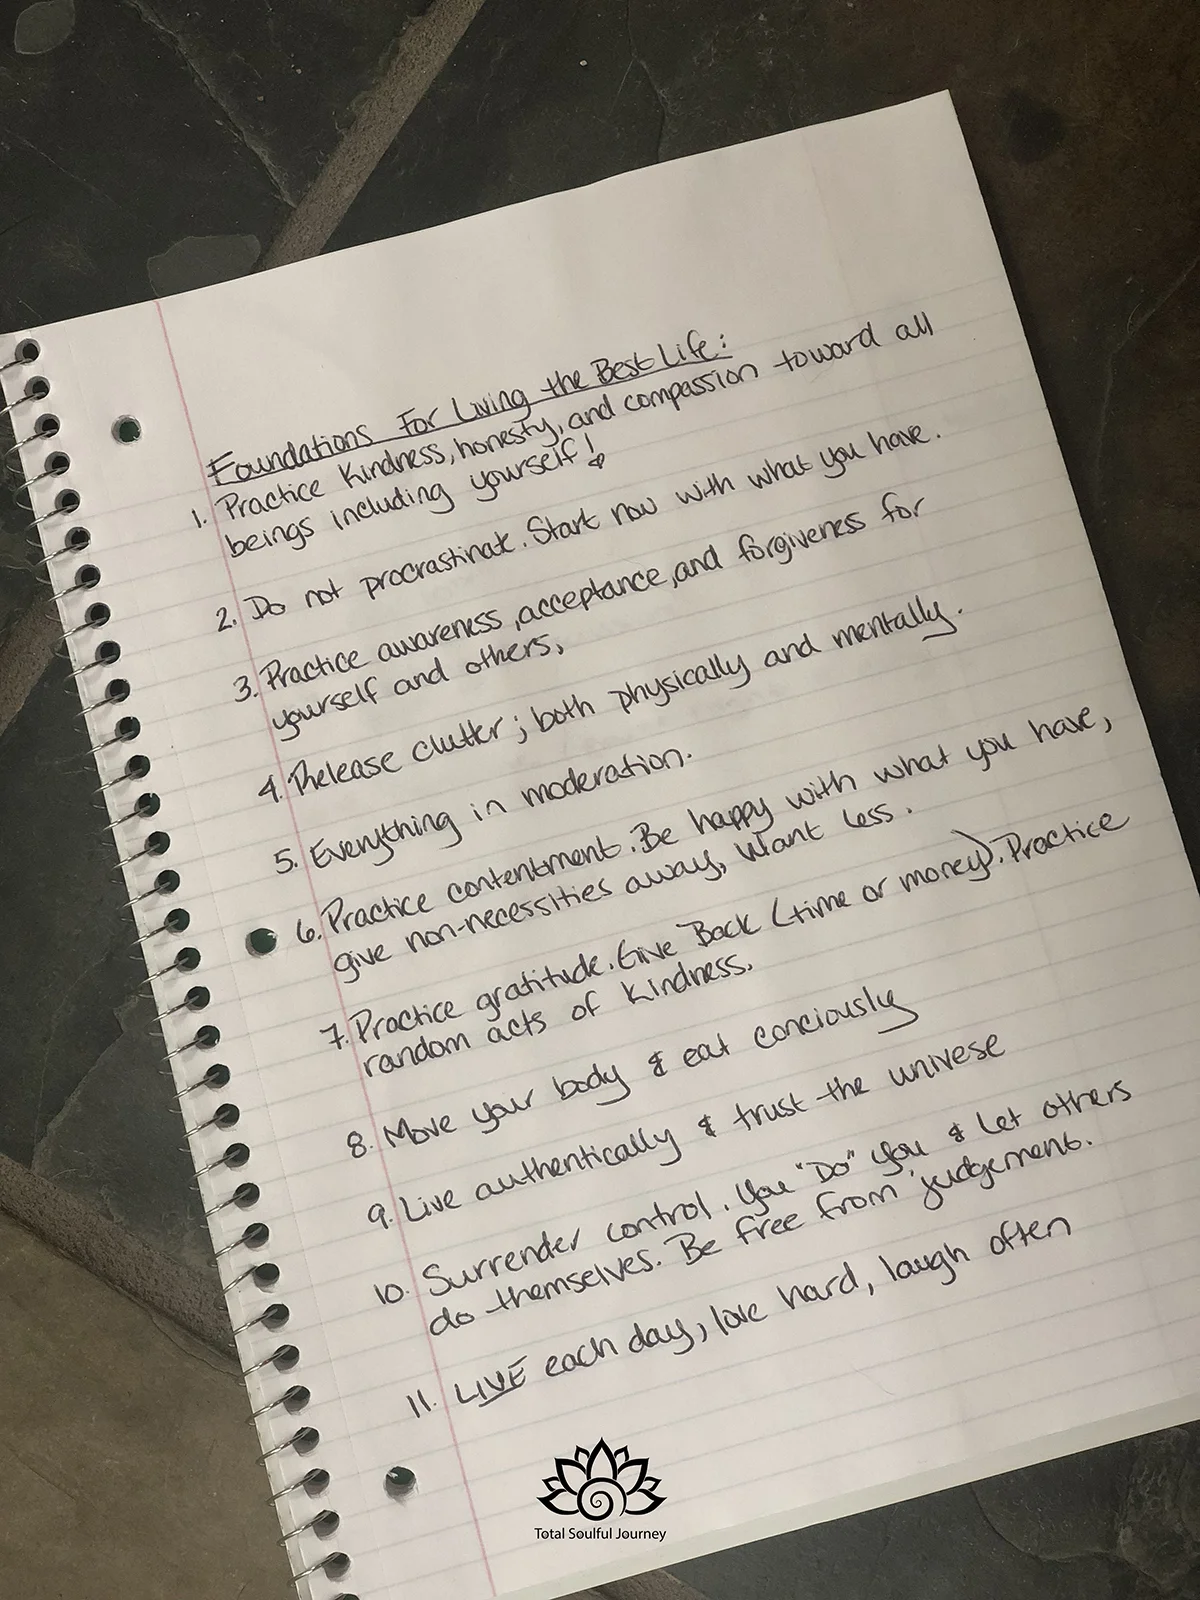 Foundations For Living the Best Life:
1. Practice Kindness, honesty, and compassion toward all
beings including yourself!
2. Do not procrastinate. Start now with what you have.
3. Practice awareness, acceptance, and forgiveness for
yourself and others.
4. Release clutter; both physically and mentally.
5. Everything in moderation.
6. Practice contentment. Be happy with what you have,
give non-necessities away, Want Less.
7. Practice gratitude. Give Back (time or money). Practice
random acts of kindness.
8. Move your body & eat conciously
9. Live authentically & trust the univese
10. Surrender control. You "Do" You & Let others
do themselves. Be free from judgement.
11. LIVE each day, love hard, laugh often
Total Soulful Journey